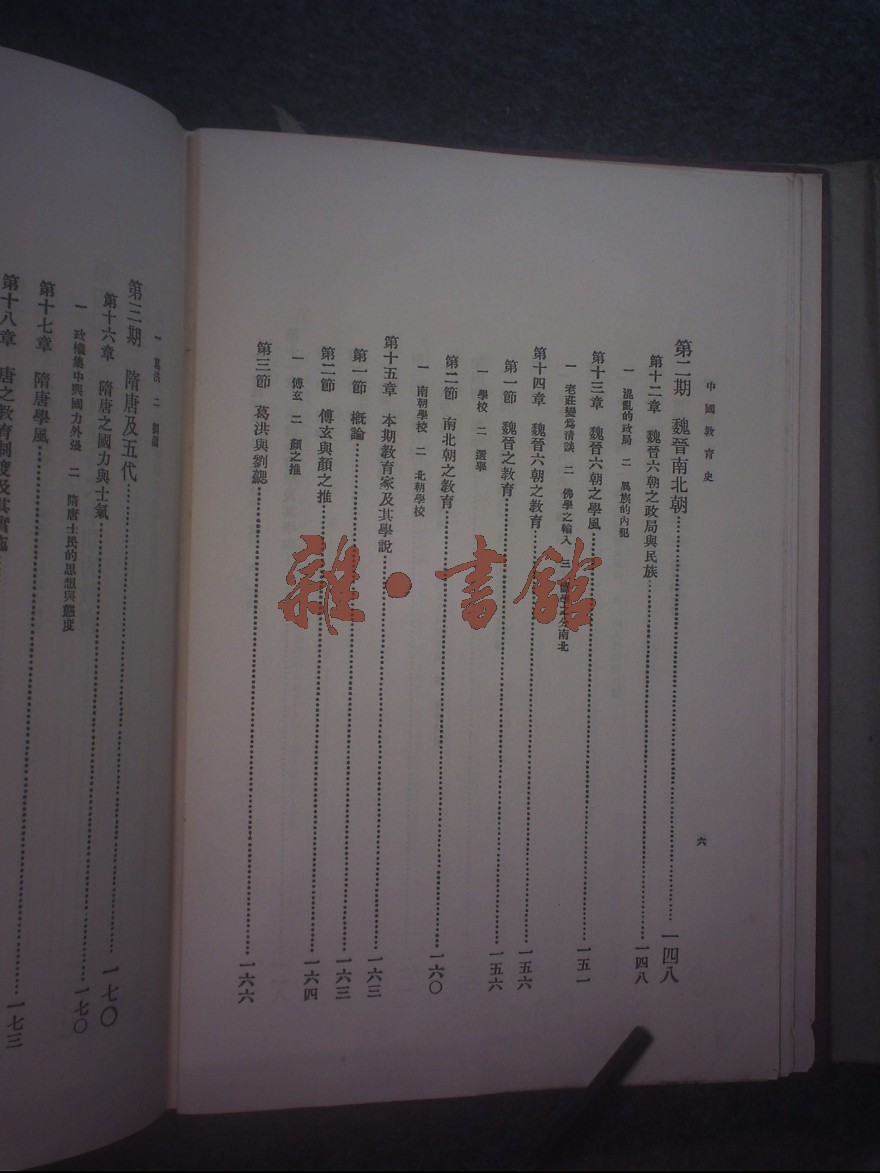 中國教育史
六
第二期 魏晉南北朝…………一四八
第十二章 魏晉六朝之政局與民族…………一四八
一 混亂的政局 二 異族的內犯
第十三章 魏晉六朝之學風…………一五一
一 老莊變爲清談 二 佛學之輸入 三 儒學之分南北
第十四章 魏晉六朝之教育…………一五六
第一節 魏晉之教育…………一五六
一 學校 二 選舉
第二節 南北朝之教育…………一六〇
一 南朝學校 二 北朝學校
第十五章 本期教育家及其學說…………一六三
第一節 概論…………一六三
第二節 傅玄與顏之推…………一六四
一 傅玄 二 顏之推
第三節 葛洪與劉勰…………一六六
一 葛洪 二 劉勰
第三期 隋唐及五代…………一七〇
第十六章 隋唐之國力與士氣…………一七〇
一 政權集中與國力外張 二 隋唐士民的思想與態度
第十七章 隋唐學風…………一七三
第十八章 唐之教育制度及其實施
雜·書館